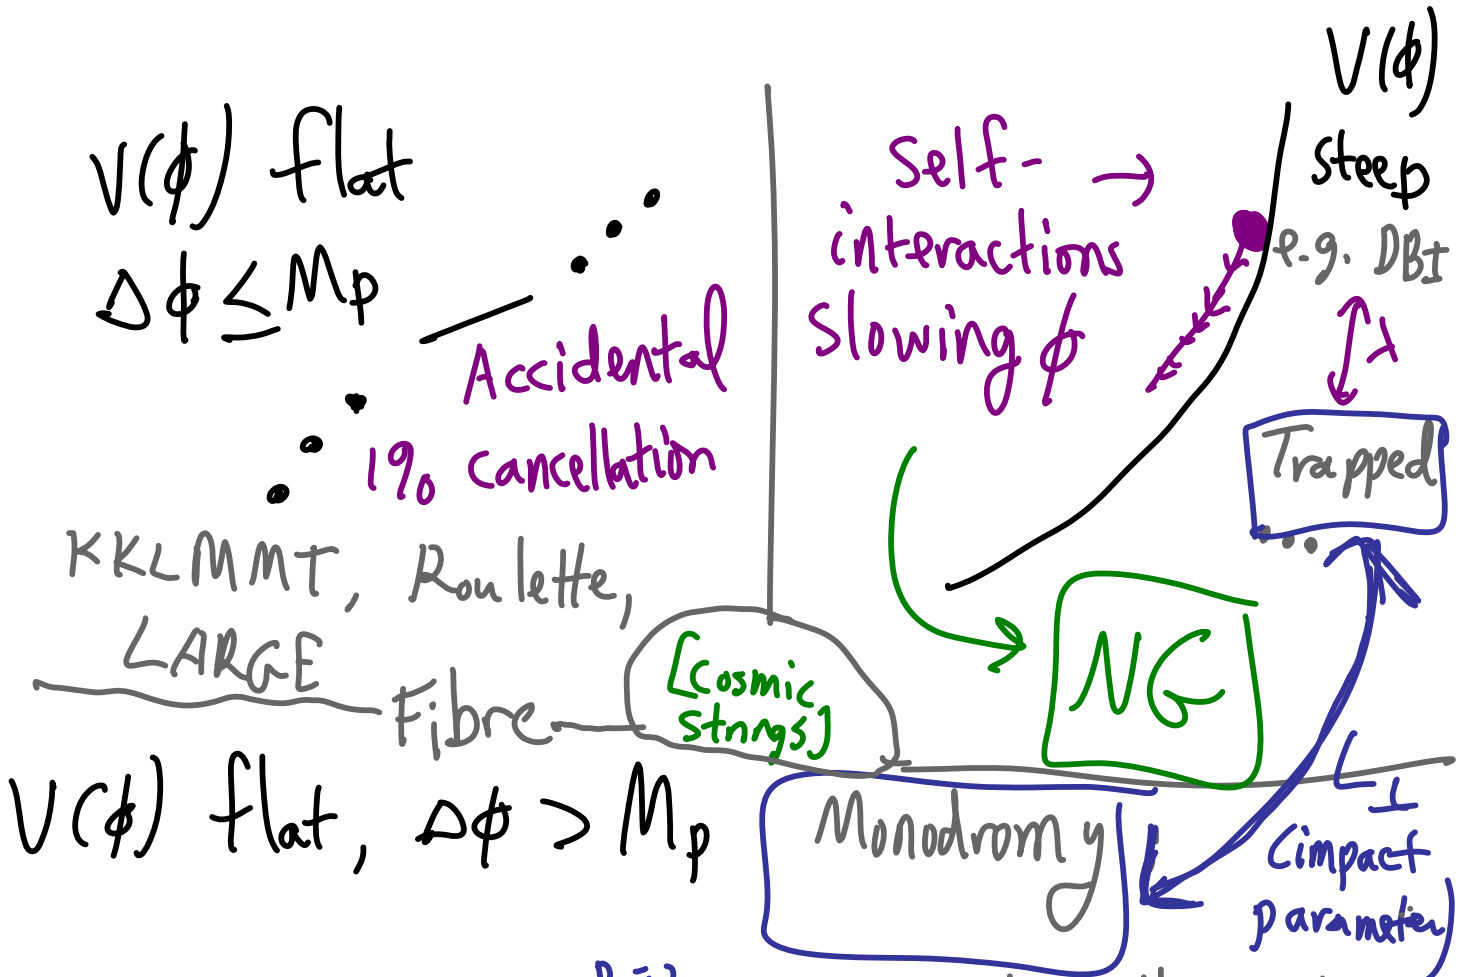 V(ϕ) flat
Δϕ ≤ Mp
Accidental
1% cancellation
KKLMMT, Roulette,
LARGE
Fibre
[Cosmic
strings]
Self-
interactions
slowing ϕ
→
V(ϕ)
steep
e.g. DBI
λ
Trapped
...
NG
V(ϕ) flat, Δϕ > Mp
Monodromy
(impact
parameter)